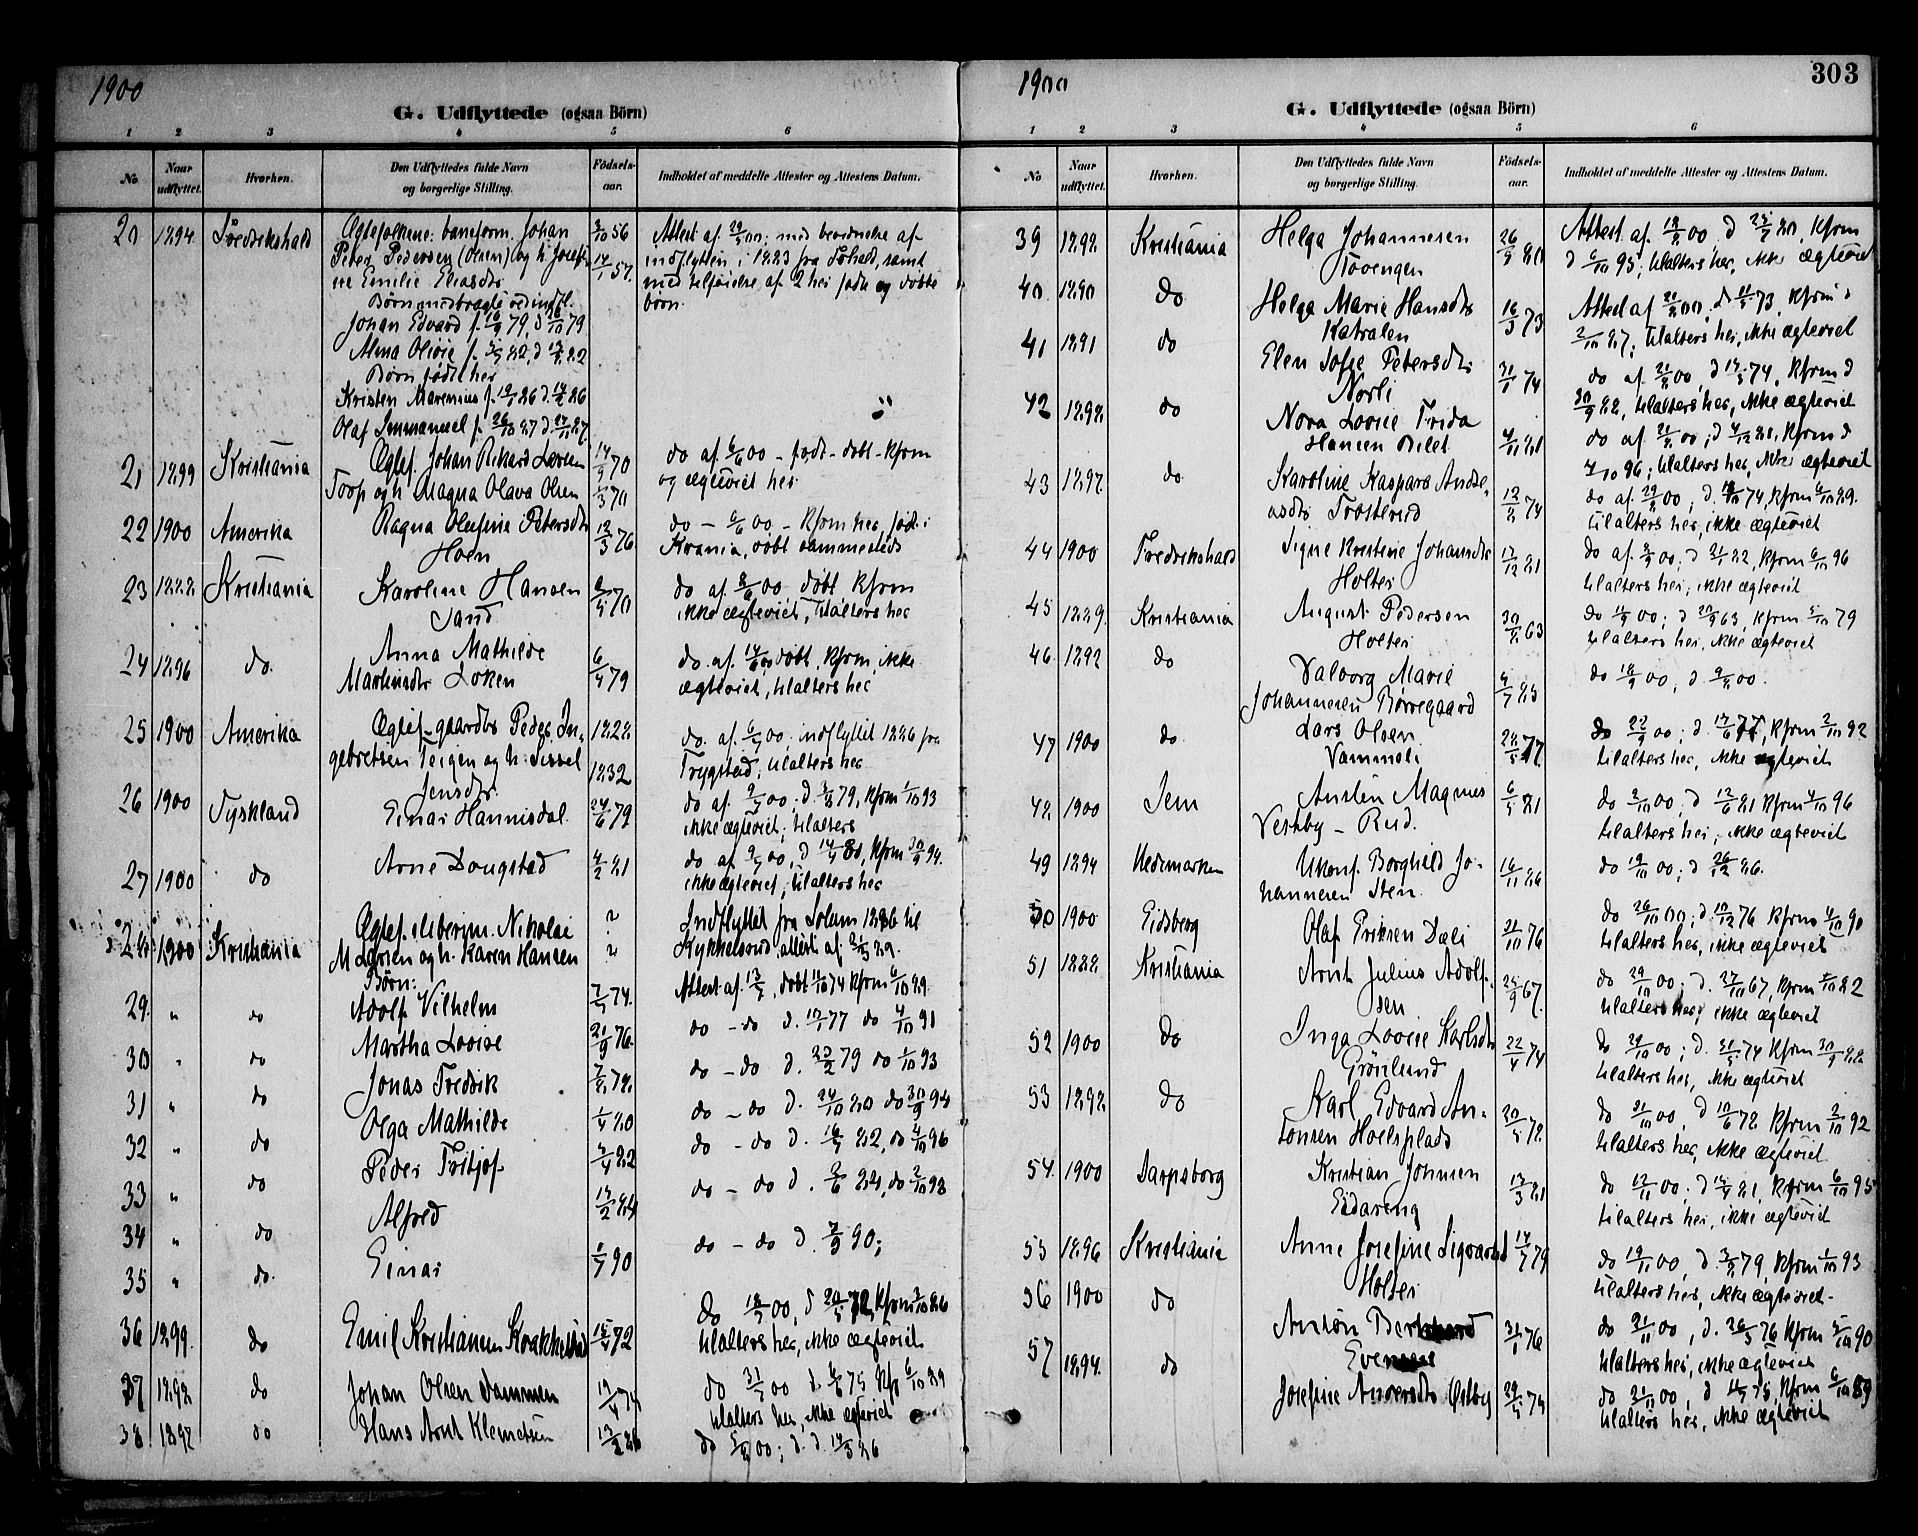 1900
G. Udflyttede (ogsaa Börn)
1 2 3 4 5 6
No. Naar udflyttet. Hvorhen. Den Udflyttedes fulde Navn og borgerlige Stilling. Födsels-aar. Indholdet af meddelte Attester og Attestens Datum.
20 1894 Fredrikshald Ægtefolkene: baneform. Johan
Peter Pedersen (Olsen) og h. Josefi-
ne Emilie Eliasdtr
Børn medbragte ved indfl.
Johan Edvard f. 16/9 79, d 26/10 79
Alma Olivie
Børn født her
Kristen Marenius
Olaf Immanuel
Attest af 29/5 00; med
indflytten i 1883 fra Fshald, samt
med tilføielse af 2 her fødte og døbte
børn.
21 1899 Kristiania Ægtef. Johan Rikard Larsen 14/9 70 do af 6/6 00 - født - døbt - kfrm
Torp og h. Magna Olava Olsen og ægteviet her
22 1900 Amerika Ragna Olufine Petersdtr 12/3 76 do - 6/6 00 - kfrm her, født i
Hoen Krania, døbt sammesteds
23 1888 Kristiania Karoline Hansen do af 8/6 00, døbt, kfrm
Sand ikke ægteviet, tilalters her
24 1896 do. Anna Mathilde 6/4 79 do. af 14/6 00 døbt, kfrm, ikke
Martinsdtr Løken ægteviet, tilalters her
25 1900 Amerika Ægtef. gaardbr Peder In- 1828 do. af 6/7 00; indflyttet 1886 fra
gebretsen Teigen og h. Sissel 1832 Trygstad; tilalters her
Jensdtr.
26 1900 Tyskland Einar Hannisdal 24/6 79 do af 9/7 00; d. 3/8 79, kfrm 1/10 93
ikke ægteviet; tilalters
27 1900 do Arne Dougstad 4/2 81 do af 9/7 00, d 14/4 81, kfrm 30/9 94.
ikke ægteviet, tilalters her
28 1900 Kristiania Ægtef. sliberim. Nikolai ? Indflyttet fra Solum 1886 til
M Larsen og h. Karen Hansen ? Kykkelsrud, attest af
Børn:
29 " do Adolf Vilhelm 7/7 74. Attest af 13/7, døbt 11/10 74 kfrm 6/10 89.
30 " do Martha Lovise 21/9 76. do - do d. 17/1 77 do 4/10 91
31 " do Jonas Fredrik 7/8 78. do - do d. 23/2 79 do 1/10 93
32 " do Olga Mathilde do - do d. 24/10 80 do 30/9 94
33 " do Peder Fritjof do - do d. 16/7 82, do 4/10 96
34 " do Alfred 17/2 84 do - do d. 2/6 84, do 2/10 98
35 " do. Einar do - do d. 7/9 90;
36 1899. do Emil Kristiansen Krakkelsrud 15/4 72 do 18/7 00, d 20/5 72, kfrm 3/10 86
tilalters her, ikke ægteviet
37 1898 do Johan Olsen Dammen do 31/7 00
tilalters her, ikke ægteviet
38 1892 do Hans Arnt Klemetsen
1900
303
G. Udflyttede (ogsaa Börn)
1 2 3 4 5 6
No Naar udflyttet. Hvorhen. Den Udflyttedes fulde Navn og borgerlige Stilling. Födsels-aar. Indholdet af meddelte Attester og Attestens Datum.
39 1898 Kristiania Helga Johannesen 26/5 80 Attest af 18/8 00. d 25/7 80, kfrm
Tovengen d 6/10 95; tilalters her, ikke ægteviet
40. 1890 do Helga Marie Hansdtr 16/3 73 Attest af 21/8 00, d 11/5 73, kfrm d
Katralen 2/10 87; tilalters her, ikke ægteviet
41 1891 do Elen Sofie Petersdtr 31/1 74 do af 21/8 00, d 17/5 74, kfrm d
Norli 30/9 88, tilalters her, ikke ægteviet
42 1898 do Nora Lovise Frida do af 21/8 00; d 4/12 81, kfrm d
Hansen Bilet 4/10 96; tilalters her, ikke ægteviet
43 1897 do Karoline Kaspara Andre- 12/8 74 do af 29/8 00; d. 18/10 74, kfrm 6/10 89.
asdtr Trosterud tilalters her, ikke ægteviet
44 1900 Fredrikshald Signe Kristine Johansdtr 17/12 81 do af 8/9 00; d 21/1 82, kfrm 4/10 96
Holter tilalters her; ikke ægteviet
45 1889. Kristiania August Pedersen 30/8 63 do 11/9 00; d 20/9 63, kfrm 5/10 79
Holter tilalters her, ikke ægteviet
46. 1892 do Valborg Marie do 18/9 00, d. 9/8 00.
Johannesen Børregaard
47 1900 do Lars Olsen 28/5 77 do 22/9 00; d. 17/6 77, kfrm 2/10 92
Vammeli tilalters her, ikke ægteviet
48 1900 Sem Anston Magnus 6/5 81 do 2/10 00; d 12/6 81 kfrm 4/10 96
Vestby - Rud. tilalters her; ikke ægteviet
49 1894 Hedemarken Ukonf. Borghild Jo- 16/11 86 do 19/10 00; d 26/12 86.
hannesen Sten.
50 1900 Eidsberg Olaf Eriksen Dæli 31/10 76 do 26/10 00; d. 10/12 76 kfrm 4/10 90
tilalters her, ikke ægteviet
51 1888 Kristiania Arnt Julius Adolf- 25/9 67. do 29/10 00; d. 27/10 67, kfrm 8/10 82
sen tilalters her; ikke ægteviet
52 1900 do Inga Lovise Karlsdtr 22/4 74 do 29/10 00; d. 31/5 74 kfrm 30/9 88
Grønlund tilalters her, ikke ægteviet
53 1898 do Karl Edvard An- 20/5 78 do 31/10 00, d 10/6 78 kfrm 2/10 92
tonsen Hoelsplads tilalters her, ikke ægteviet
54. 1900 Sarpsborg Kristian Johnsen 13/3 81 do 12/11 00; d 18/4 81, kfrm 6/10 95
Eidareng tilalters her, ikke ægteviet
55 1896 Kristiania Anne Josefine Sigvartsd do 19/11 00, d. 3/8 79, kfrm 1/10 93
Holter tilalters her, ikke ægteviet.
56 1900 do Anton Bernhard 31/1 76 do 21/11 00, d. 26/3 76 kfrm 5/10 90
Evensen tilalters her, ikke ægteviet
57 1894. do Josefine Andersdtr Ørtby do 21/11 00, kfrm 6/10 89
tilalters her, ikke ægteviet